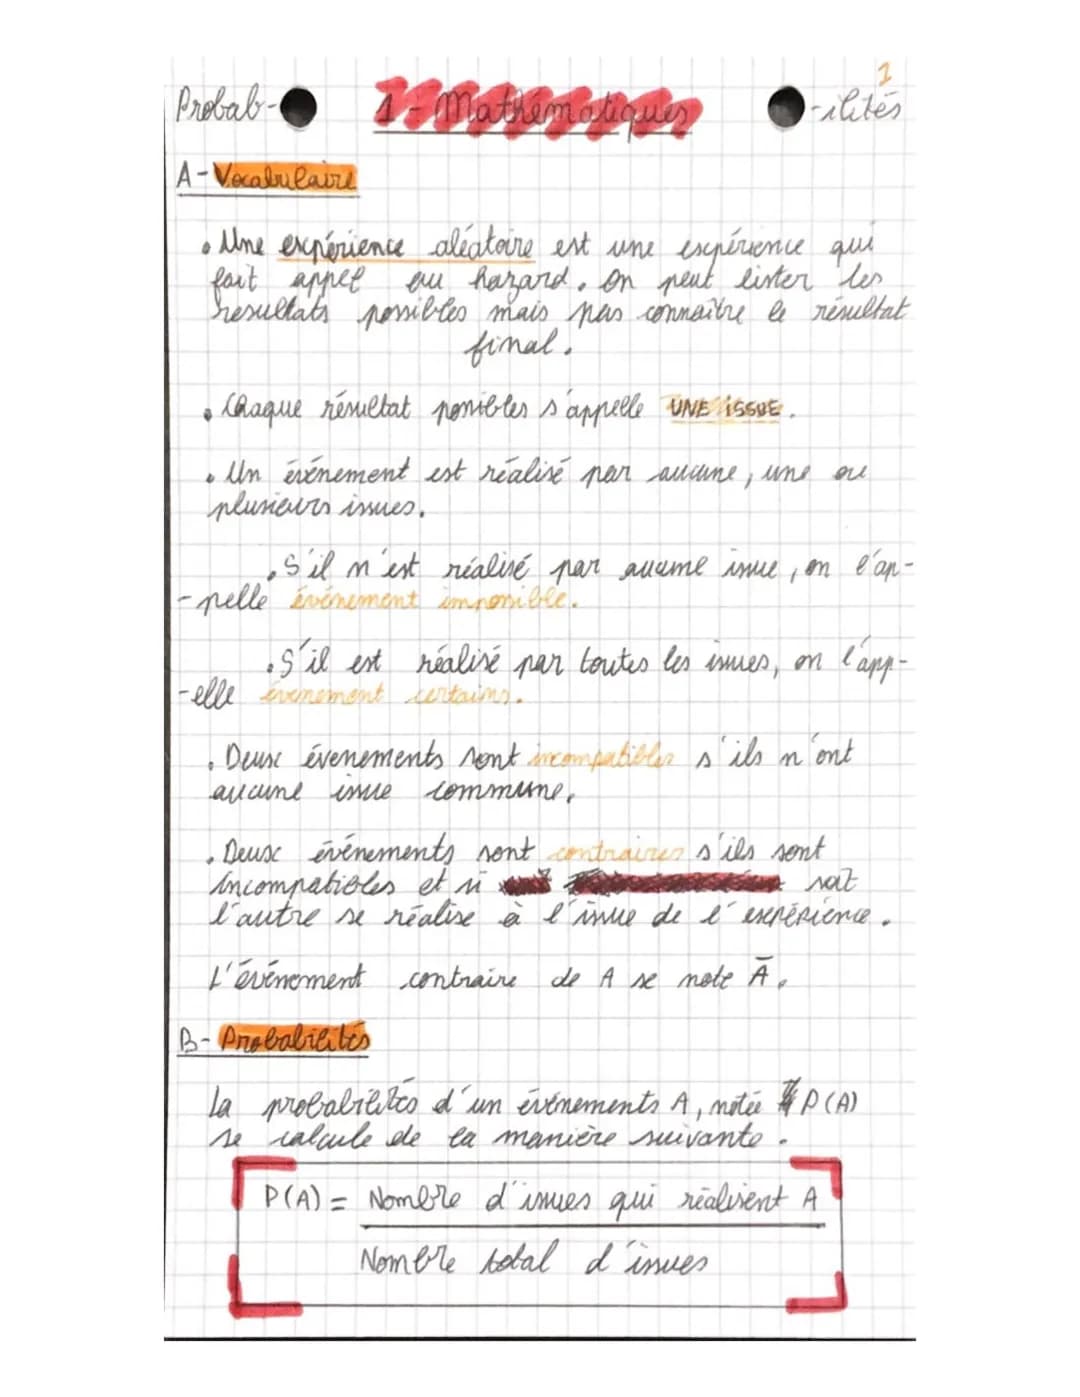 1
Probab- 1 - Mathématiques -ilités
A - Vocabulaire
• Une expérience aléatoire est une expérience qui
fait appel au hazard. On peut lister les
resultats possibles mais pas connaître le résultat
final.
• Chaque résultat possibles s'appelle UNE ISSUE.
• Un événement est réalisé par aucune, une ou
plusieurs issues.
• S'il n'est réalisé par aucune issue, on l'ap-
-pelle événement impossible.
• S'il est réalisé par toutes les issues, on l'app-
-elle évenement certains.
• Deux évenements sont incompatibles s'ils n'ont
aucune issue commune.
• Deux événements sont contraires s'ils sont
incompatibles et si soit
l'autre se réalise à l'issue de l'expérience.
L'événement contraire de A se note Ā.
B - Probabilités
La probabilités d'un événements A, notée P(A)
se calcule de la manière suivante.
P(A) = Nombre d'issues qui réalisent A
Nombre total d'issues